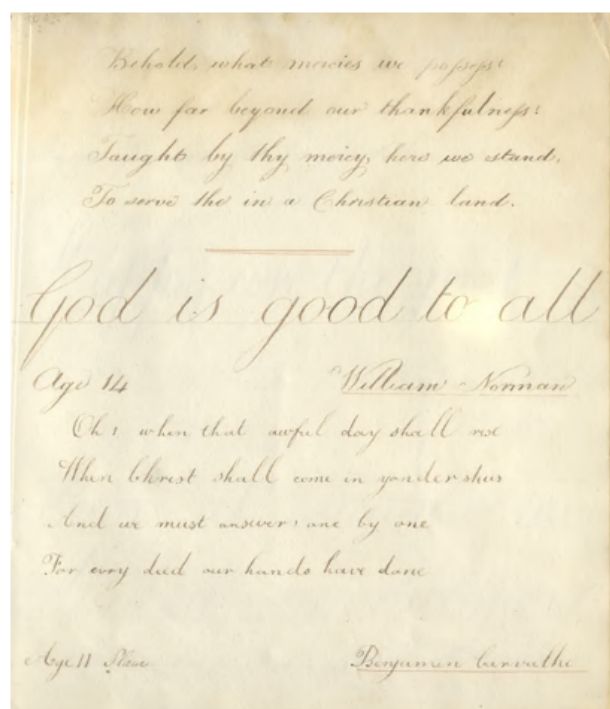 Behold, what mercies we possess!
How far beyond our thankfulness!
Taught by thy mercy, here we stand,
To serve the in a Christian land.
God is good to all
Age 14 William Norman
Oh! when that awful day shall rise
When Christ shall come in yonder skies
And we must answer, one by one
For evry deed our hands have done
Age 11 Slave Benjamen